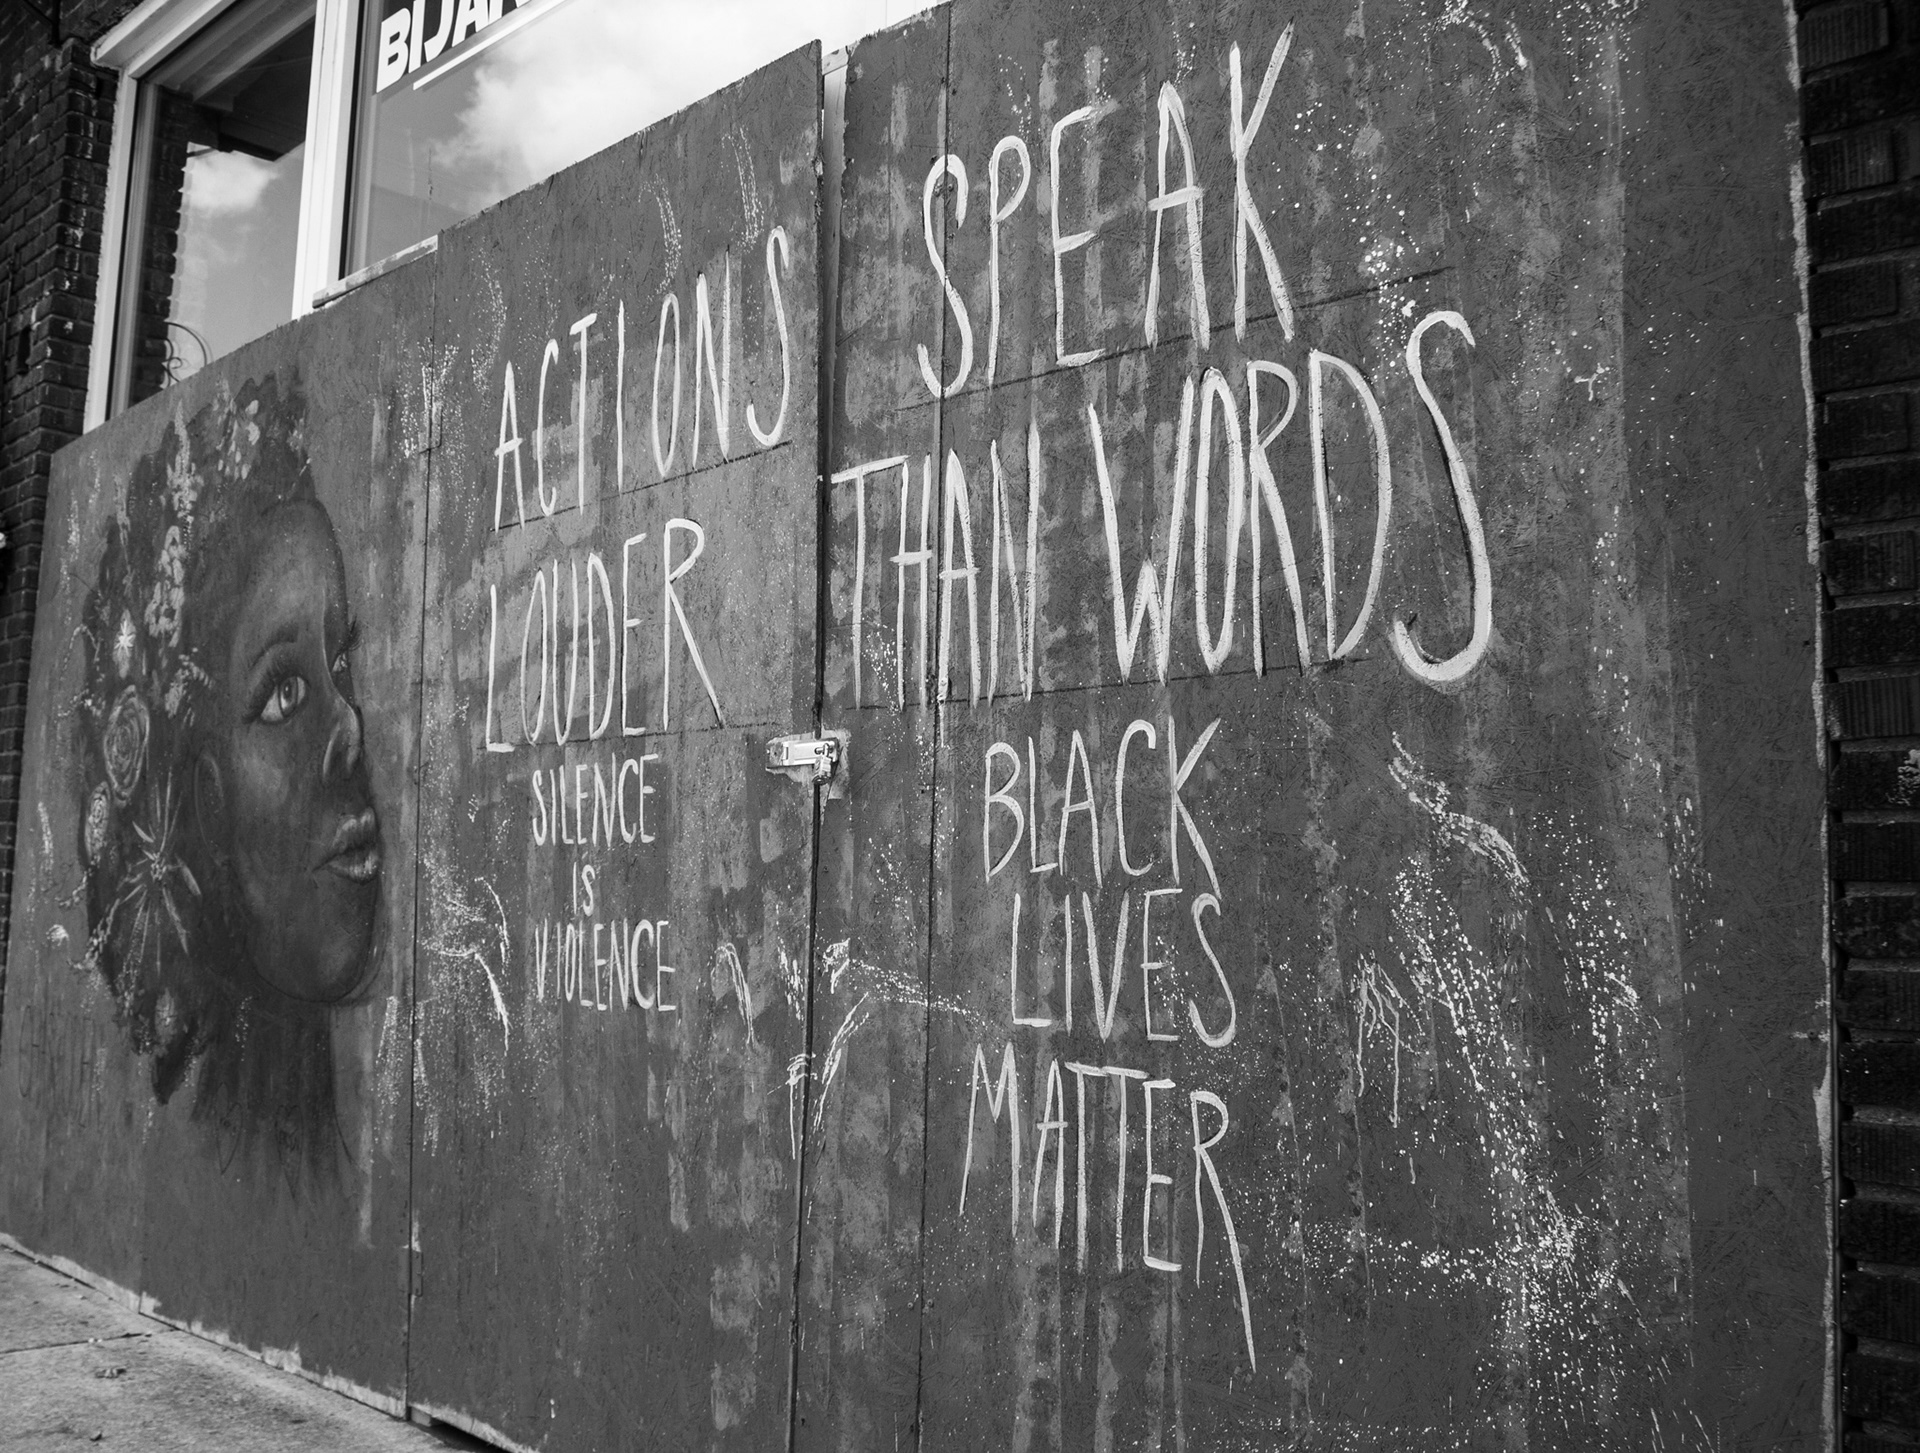 ACTIONS SPEAK
LOUDER THAN WORDS
SILENCE
IS
VIOLENCE
BLACK
LIVES
MATTER